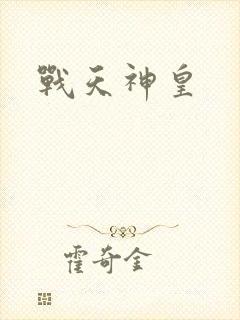 戰天神皇
霍奇金